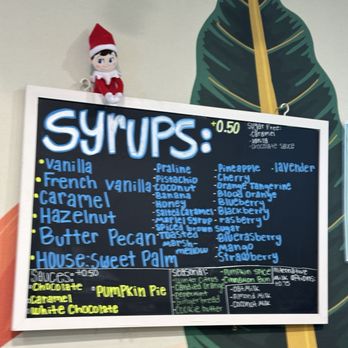 SYRUPS:
+0.50
Sugar Free:
-Caramel
-Vanilla
-chocolate sauce
• Vanilla
• French vanilla
• Caramel
• Hazelnut
• Butter Pecan
• House:Sweet Palm
-Praline
-Pistachio
-Coconut
-Banana
-Honey
-Salted Caramel
-Spiced Brown Sugar
-Toasted
marsh-
mellow
-Pineapple
-Cherry
-Orange Tangerine
-Blood Orange
-Blueberry
-Blackberry
-raspberry
-Blueraspberry
-Mango
-Strawberry
-lavender
Sauces: +0.50
• Chocolate
• Caramel
• White Chocolate
• Pumpkin Pie
Seasonal:
-Pumpkin Spice
Alternative
Milk Options:
-Oat Milk
-Almond Milk
-Coconut Milk